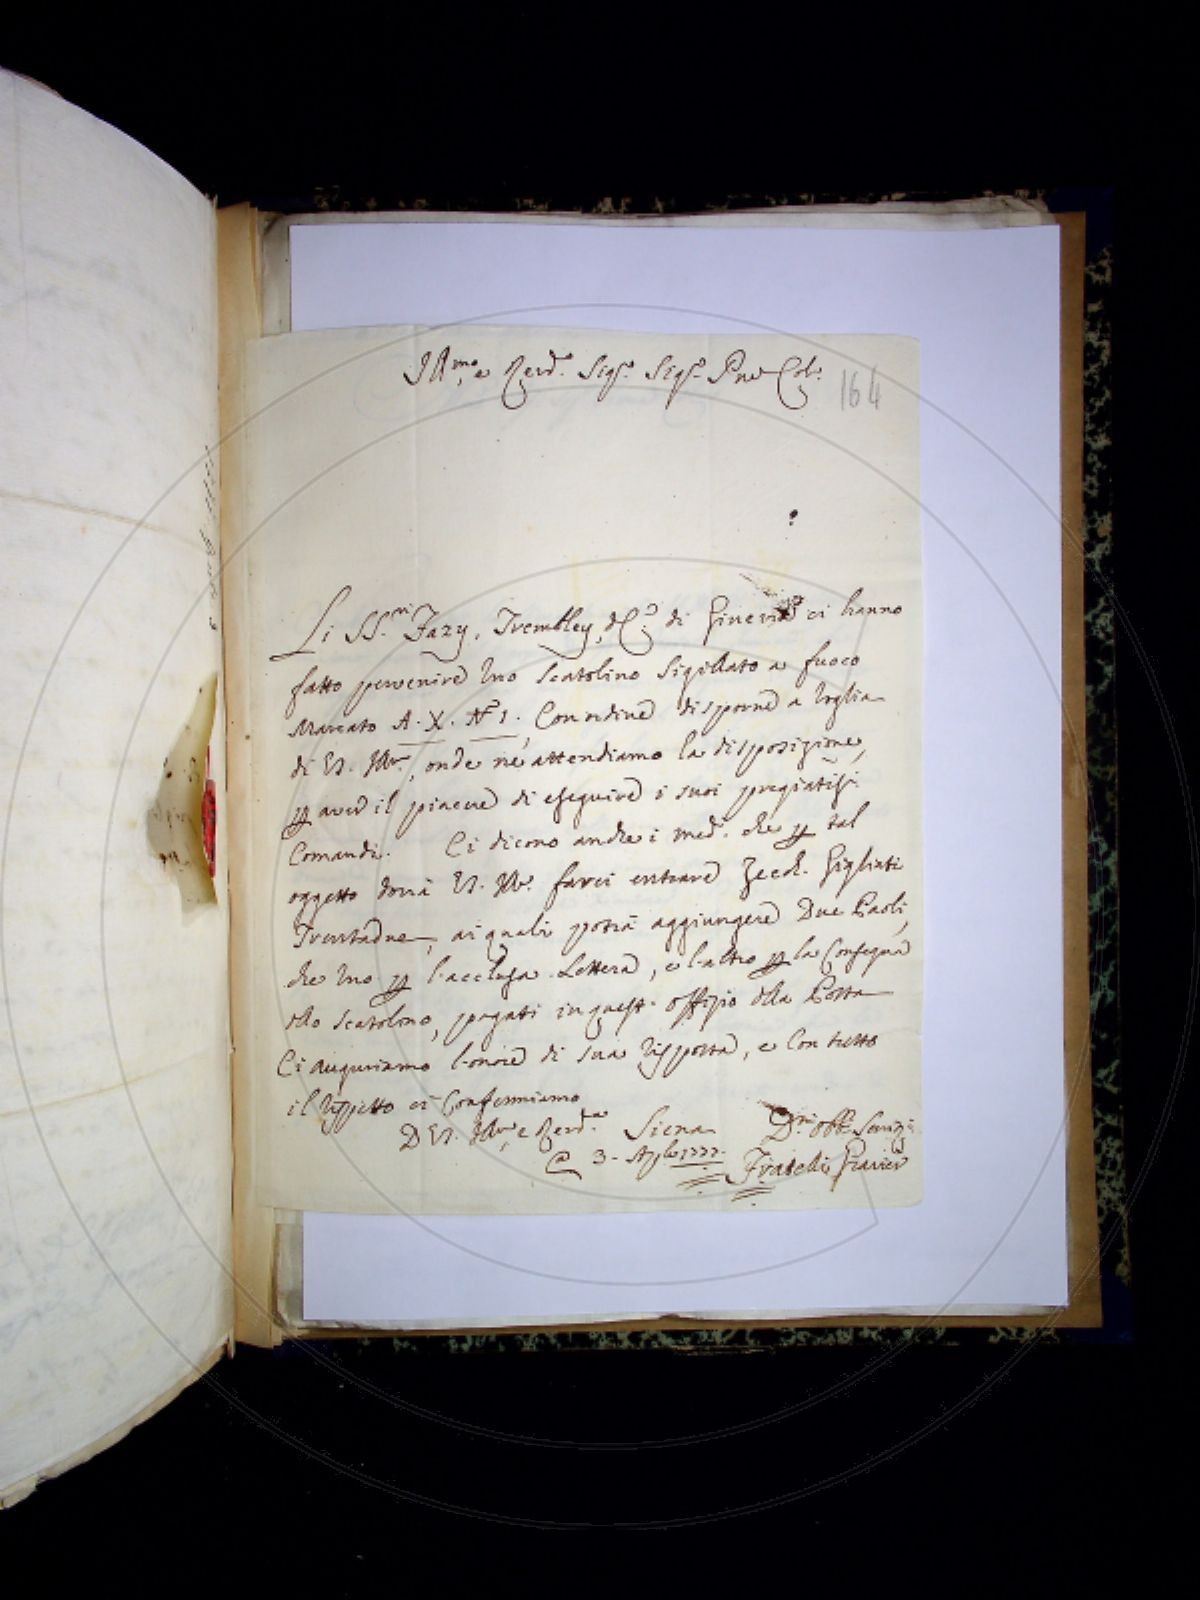 Ill.mo e Rev.do Sig.r Sig.r Pne Col.
164
Li SS.ri Fazy, Trembley, & C.o di Ginevra ci hanno
fatto pervenire Uno Scatolino Sigillato a fuoco
Marcato A. X. N.o 1, Con ordine disporne a Voglia
di VS. Ill.ma, onde ne attendiamo la disposizione,
per aver il piacere di eseguire i suoi pregiatiss.i
Comandi. Ci dicono anche i med.i che per tal
oggetto dovrà VS. Ill.ma farci entrare Zecch. Gigliati
Trentadue, ai quali potrà aggiungere Due Paoli,
che Uno per l'acclusa Lettera, e l'altro per la Consegna
dllo Scatolino, pagati in quest. offizio dlla Posta
Ci auguriamo l'onore di sua risposta, e Con tutto
il rispetto ci Confermiamo
D VS. Ill.ma e Rev.da Siena D.mi obb.i Servi.
@ 3 1777. Fratelli